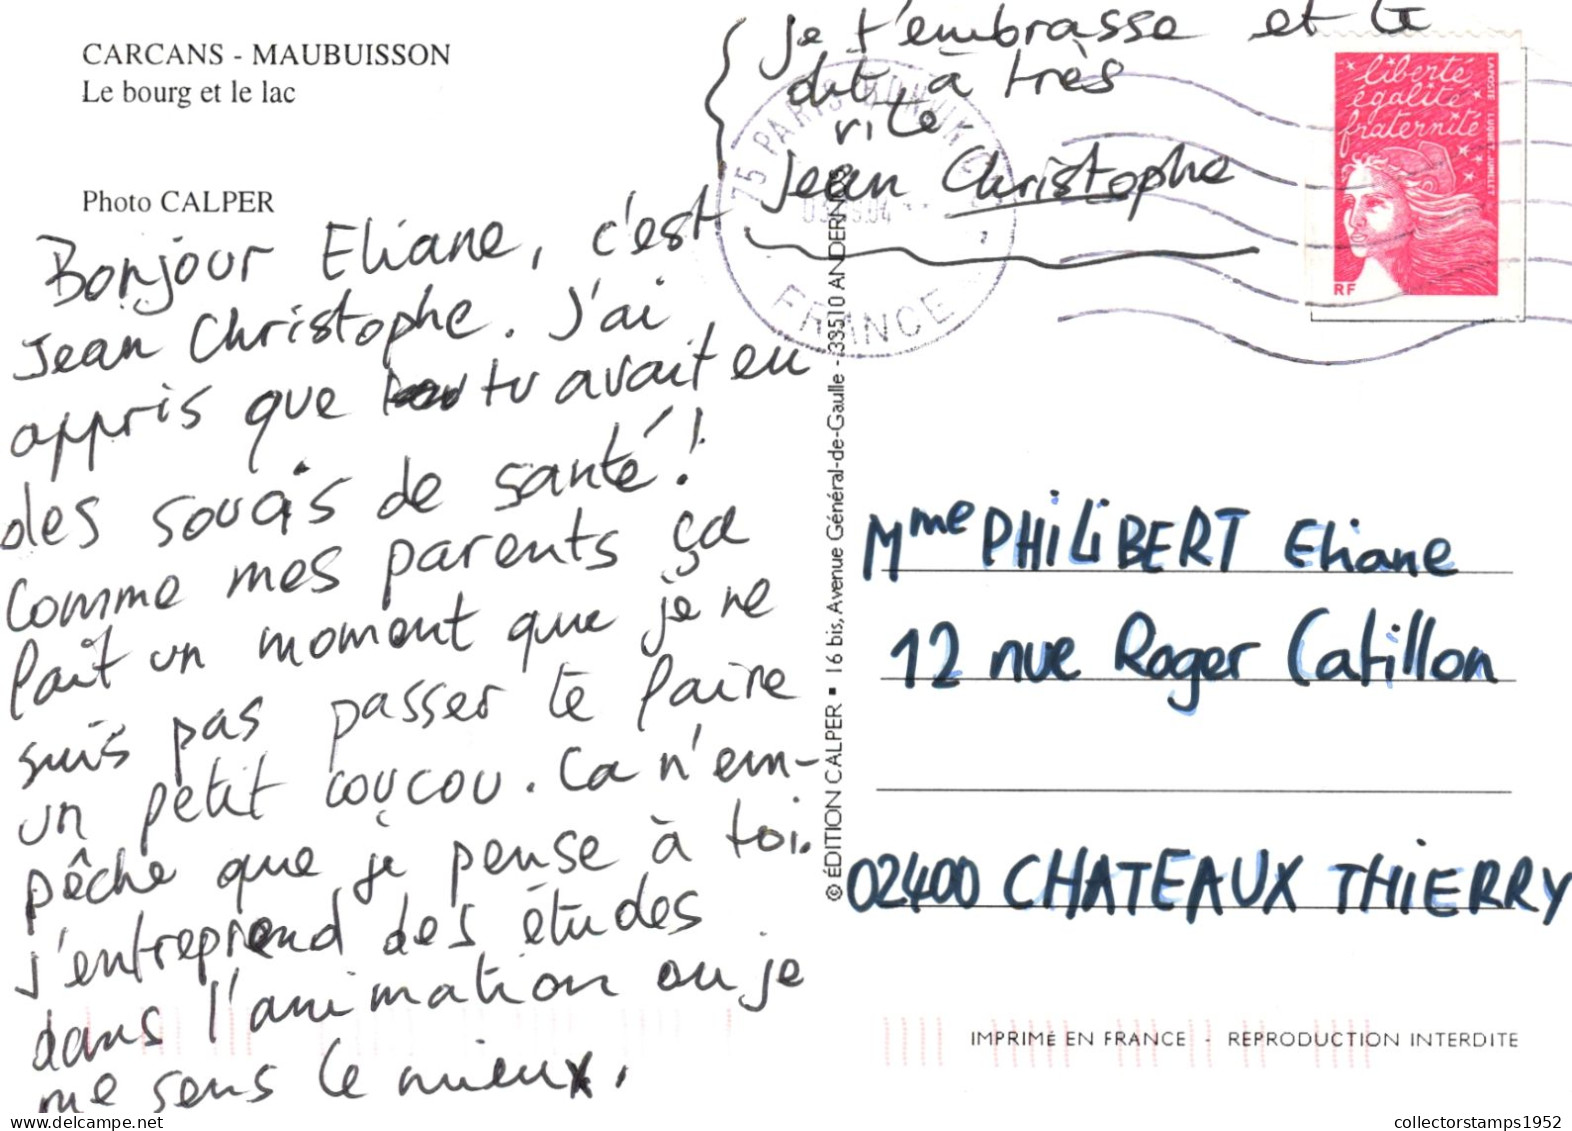 CARCANS - MAUBUISSON
Le bourg et le lac
Photo CALPER
Bonjour Eliane, c'est
Jean Christophe. J'ai
appris que tu avait eu
des soucis de santé!
Comme mes parents ça
fait un moment que je ne
suis pas passer te faire
un petit coucou. Ca n'em-
pêche que je pense à toi.
J'entreprend des études
dans l'animation ou je
me sens le mieux.
je t'embrasse et te
dit à très
vite.
Jean Christophe
75 PARIS
FRANCE
liberté
égalité
fraternité
LAPOSTE LUQUET-JUMELET
RF
© ÉDITION CALPER ▪ 16 bis, Avenue Général-de-Gaulle - 33510 ANDERNOS
Mme PHILIBERT Eliane
12 rue Roger Catillon
02400 CHATEAUX THIERRY
IMPRIMÉ EN FRANCE - REPRODUCTION INTERDITE
collectorstamps1952